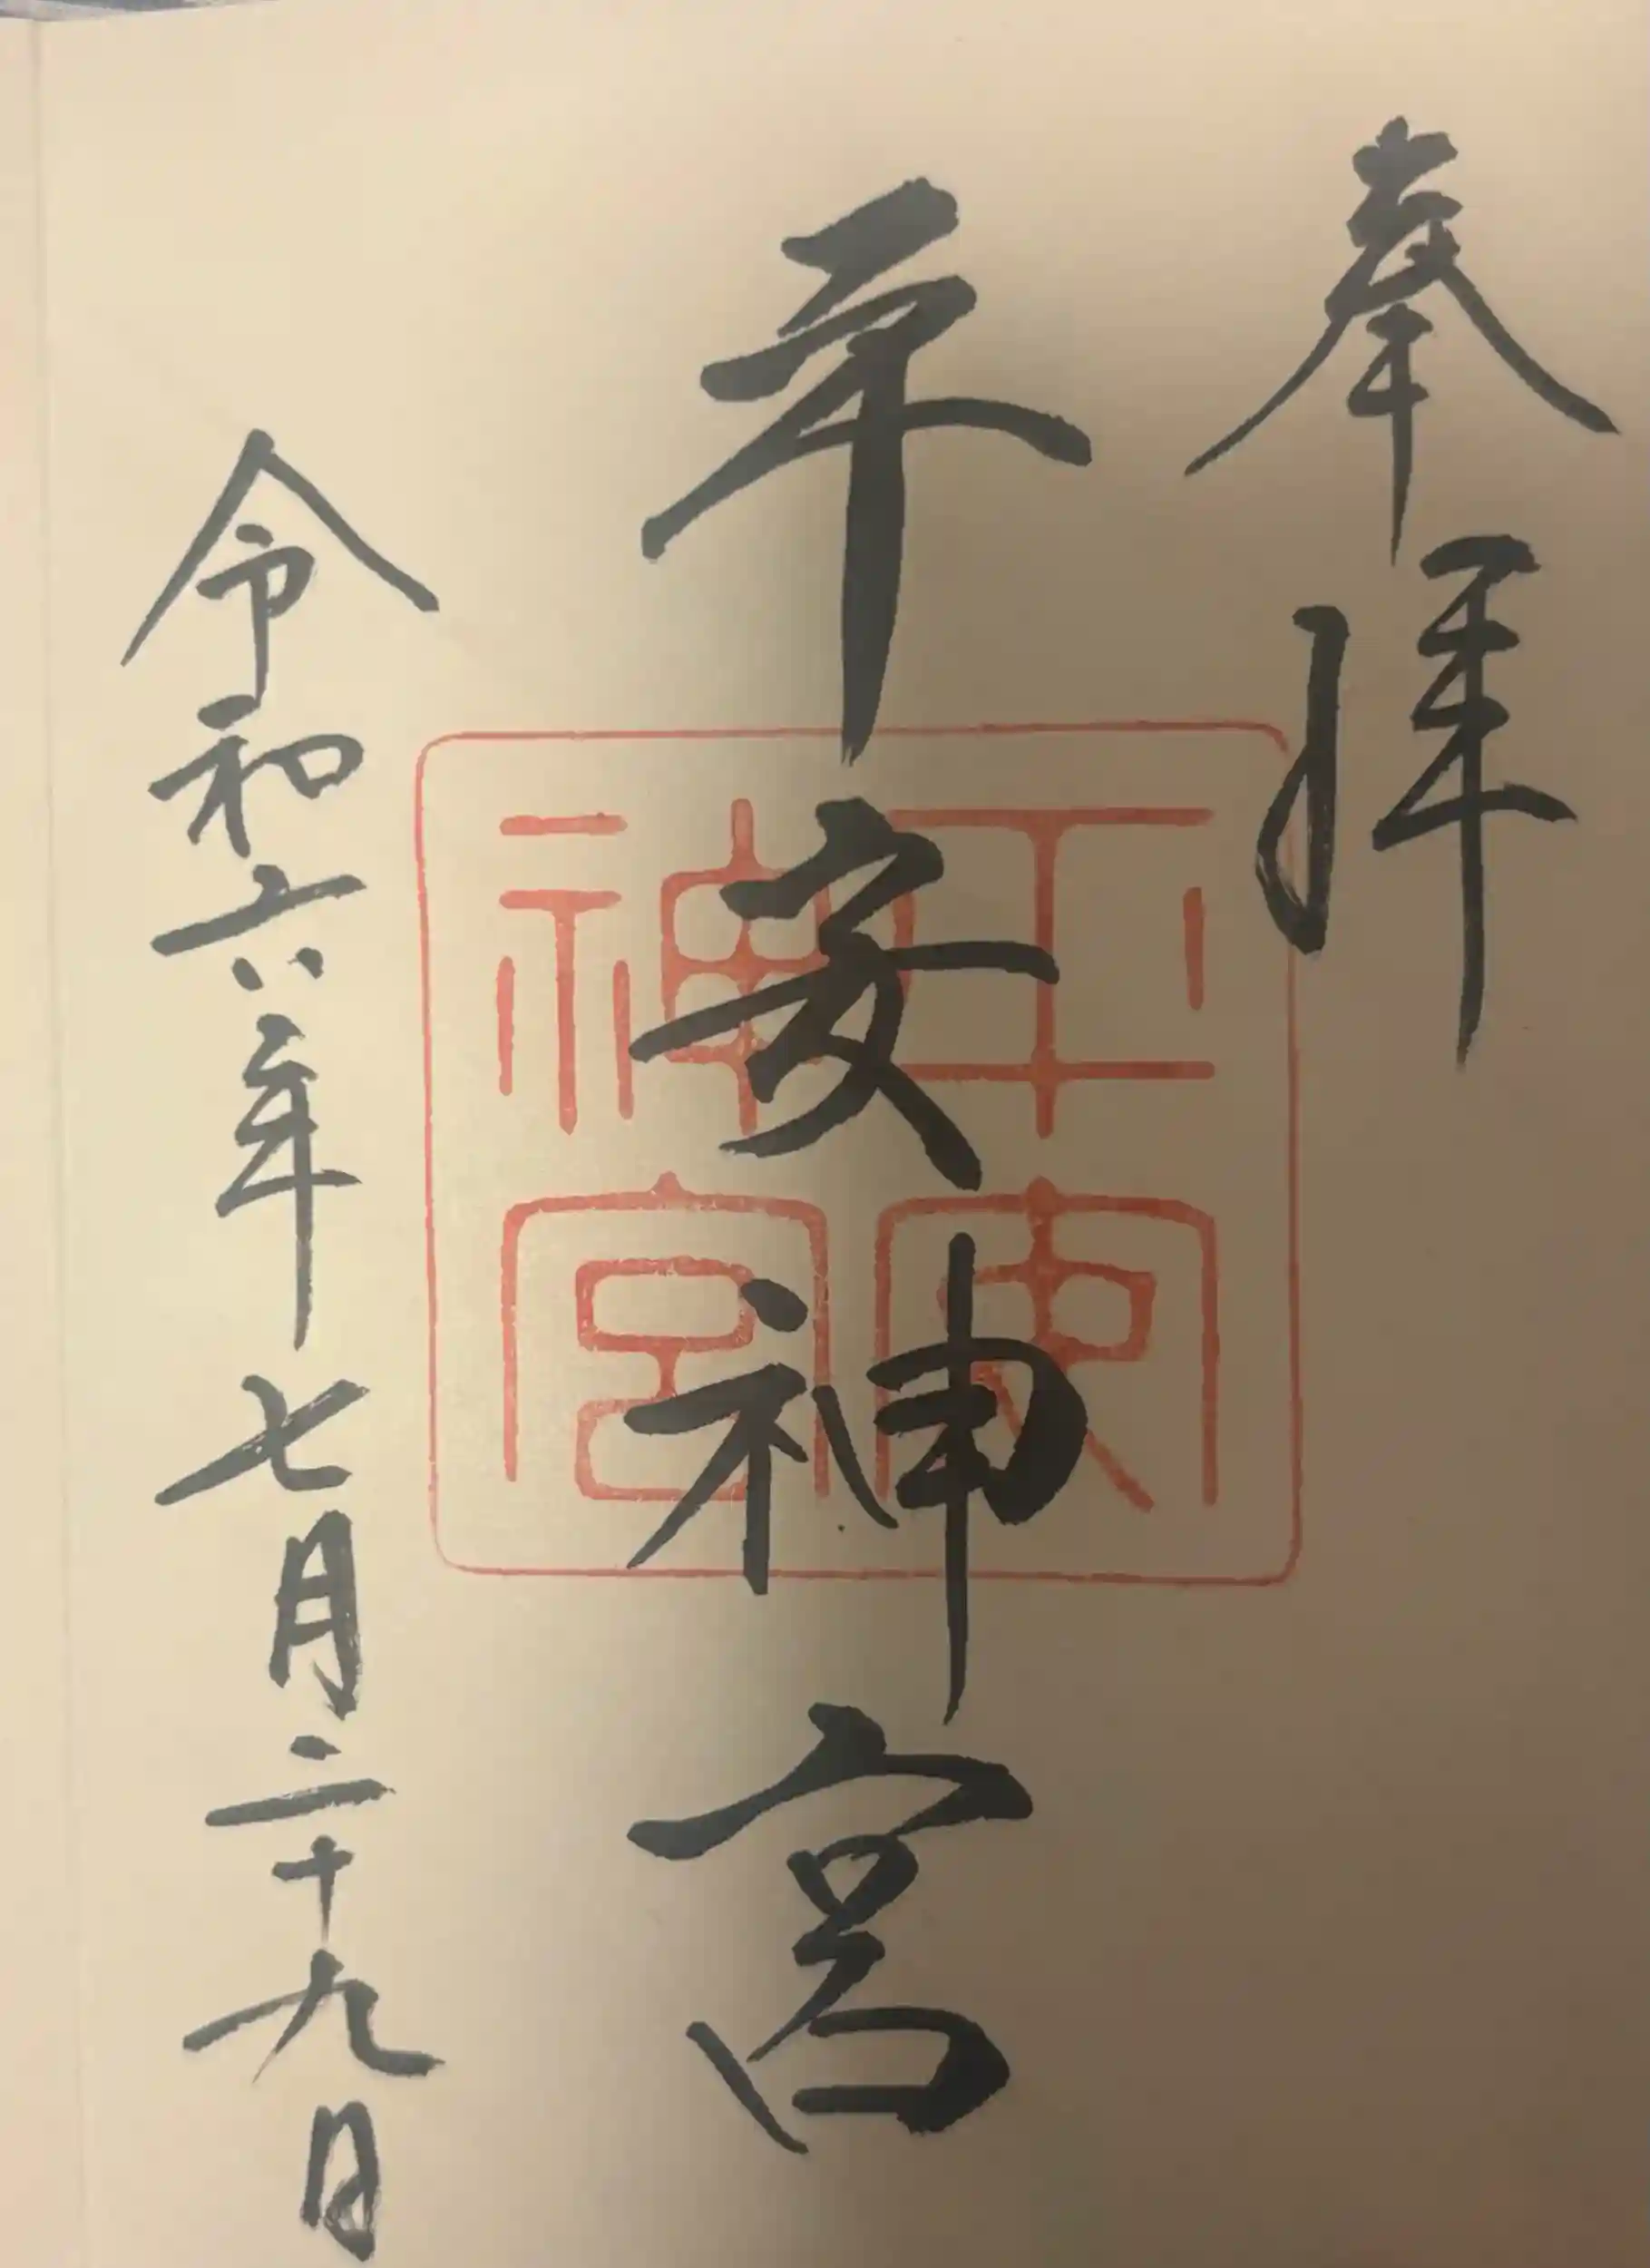 奉拝
平安神宮
平安神宮
令和六年七月二十九日